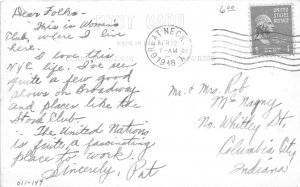 6.00
POST CARD
Dear Folks -
This is Women's
Club, where I live
here.
I love this
NYC life. I've seen
quite a few good
shows on Broadway
and places like the
Stork Club.
- The United Nations
is quite a fascinating
place to work.
Sincerely, Pat
011-149
GREAT NECK, N.Y.
FEB 12
7-AM
1948
UNITED STATES POSTAGE
Mr. & Mrs. Rob
Mc Nagny
No. Whitley St.
Columbia City
Indiana